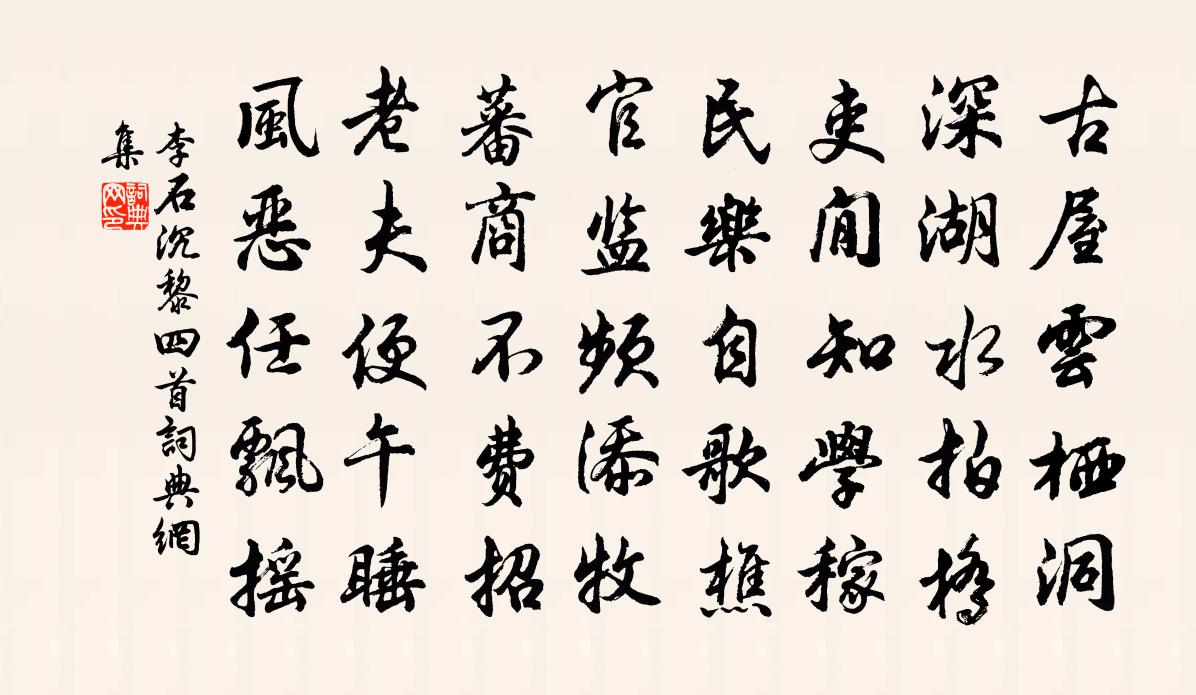 古屋雲栖洞
深湖水拍橋
吏閒知學稼
民樂自歌樵
官监頻添牧
蕃商不费招
老夫便午睡
風恶任飄摇
李石沉黎四首詞典網
集
詞典网印